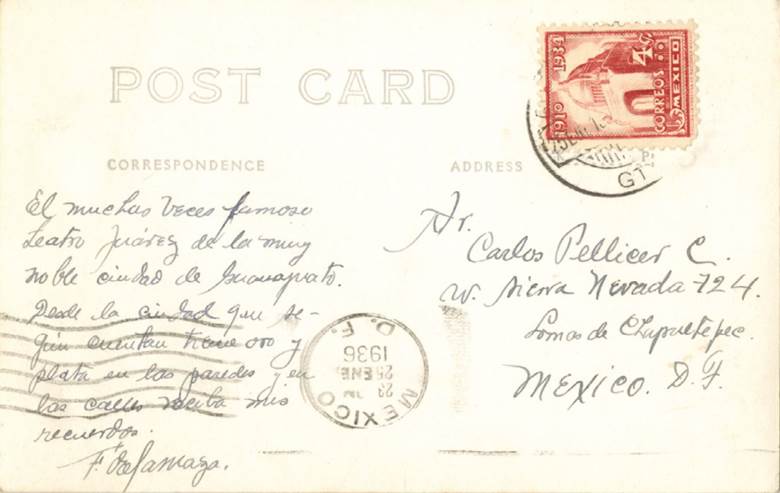 POST CARD
CORRESPONDENCE
ADDRESS
El muchas veces famoso
Teatro Juárez de la muy
noble ciudad de Guanajuato.
Desde la ciudad que se-
gún cuentan tiene oro y
plata en las paredes y en
las calles reciba mis
recuerdos.
Sr.
Carlos Pellicer C.
Sierra Nevada 724.
Lomas de Chapultepec.
MEXICO. D. F.
1910 1934
4¢
CORREOS
MEXICO
GT
MEXICO
25 ENE.
1936
D. F.